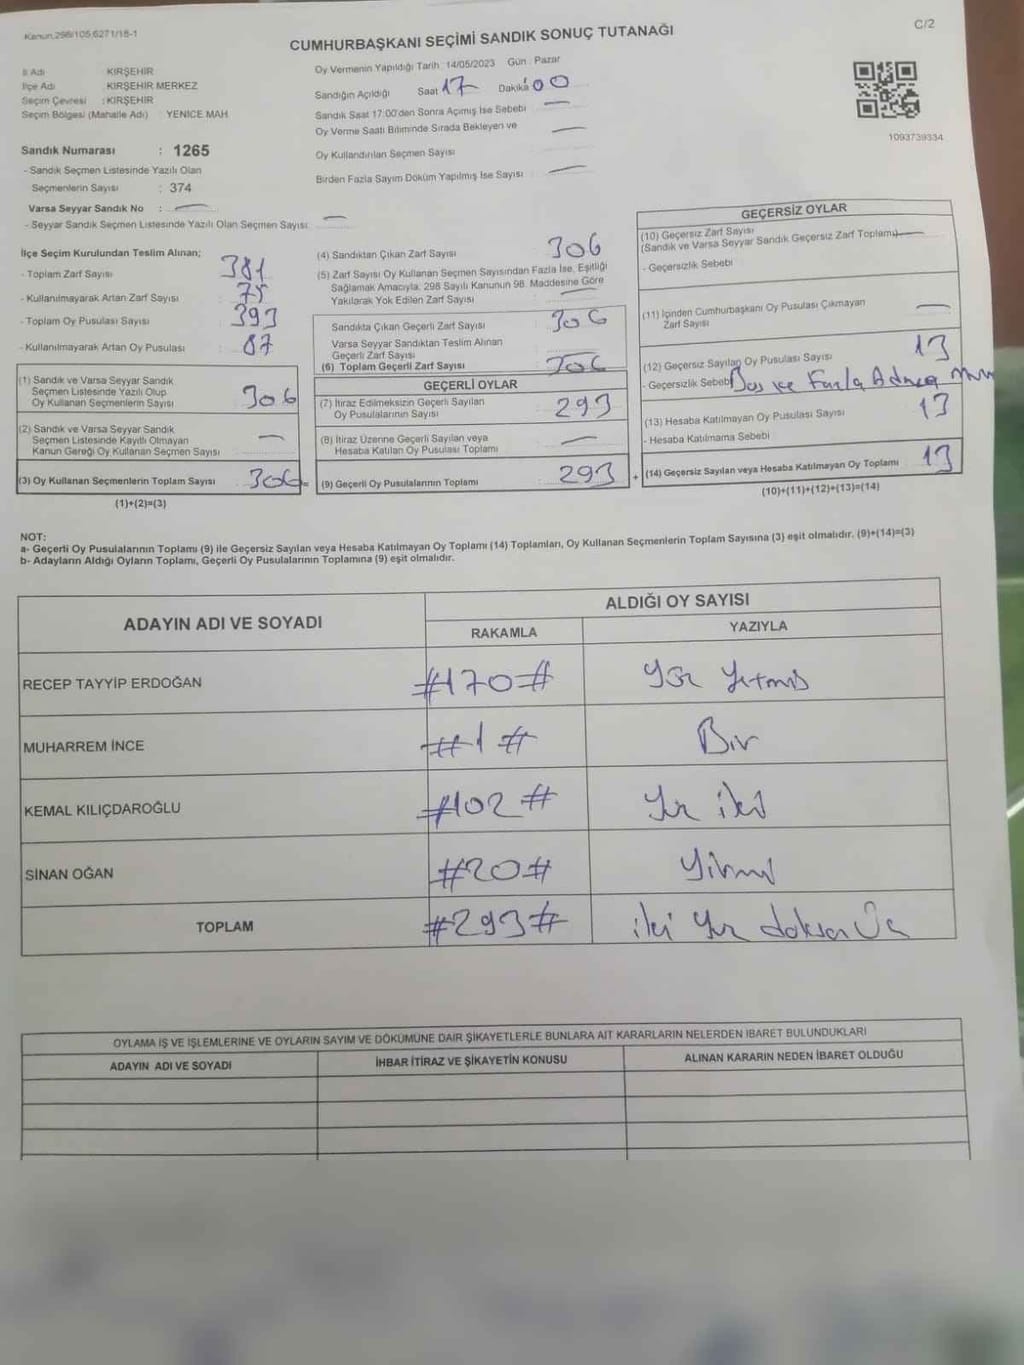 Kanun.298/105,6271/18-1
C/2
CUMHURBAŞKANI SEÇİMİ SANDIK SONUÇ TUTANAĞI
İl Adı KIRŞEHİR
İlçe Adı KIRŞEHİR MERKEZ
Seçim Çevresi : KIRŞEHİR
Seçim Bölgesi (Mahalle Adı) : YENICE MAH
Sandık Numarası : 1265
- Sandık Seçmen Listesinde Yazılı Olan
Seçmenlerin Sayısı : 374
Varsa Seyyar Sandık No : —
- Seyyar Sandık Seçmen Listesinde Yazılı Olan Seçmen Sayısı: —
Oy Vermenin Yapıldığı Tarih :14/05/2023 Gün : Pazar
Sandığın Açıldığı Saat 17 Dakika 00
Sandık Saat 17:00'den Sonra Açımış İse Sebebi —
Oy Verme Saati Bitiminde Sırada Bekleyen ve —
Oy Kullandırılan Seçmen Sayısı
Birden Fazla Sayım Döküm Yapılmış İse Sayısı —
1093739334
İlçe Seçim Kurulundan Teslim Alınan;
- Toplam Zarf Sayısı 381
- Kullanılmayarak Artan Zarf Sayısı 75
- Toplam Oy Pusulası Sayısı 393
- Kullanılmayarak Artan Oy Pusulası 87
(1) Sandık ve Varsa Seyyar Sandık
Seçmen Listesinde Yazılı Olup
Oy Kullanan Seçmenlerin Sayısı 306
(2) Sandık ve Varsa Seyyar Sandık
Seçmen Listesinde Kayıtlı Olmayan
Kanun Gereği Oy Kullanan Seçmen Sayısı —
(3) Oy Kullanan Seçmenlerin Toplam Sayısı 306 =
(1)+(2)=(3)
(4) Sandıktan Çıkan Zarf Sayısı 306
(5) Zarf Sayısı Oy Kullanan Seçmen Sayısından Fazla İse, Eşitliği
Sağlamak Amacıyla; 298 Sayılı Kanunun 98. Maddesine Göre
Yakılarak Yok Edilen Zarf Sayısı —
Sandıkta Çıkan Geçerli Zarf Sayısı 306
Varsa Seyyar Sandıktan Teslim Alınan
Geçerli Zarf Sayısı
(6) Toplam Geçerli Zarf Sayısı 306
GEÇERLİ OYLAR
(7) İtiraz Edilmeksizin Geçerli Sayılan
Oy Pusulalarının Sayısı 293
(8) İtiraz Üzerine Geçerli Sayılan veya
Hesaba Katılan Oy Pusulası Toplamı —
(9) Geçerli Oy Pusulalarının Toplamı 293 +
GEÇERSİZ OYLAR
(10) Geçersiz Zarf Sayısı
(Sandık ve Varsa Seyyar Sandık Geçersiz Zarf Toplamı) —
- Geçersizlik Sebebi
(11) İçinden Cumhurbaşkanı Oy Pusulası Çıkmayan
Zarf Sayısı —
(12) Geçersiz Sayılan Oy Pusulası Sayısı 13
- Geçersizlik Sebebi Boş ve Fazla
(13) Hesaba Katılmayan Oy Pusulası Sayısı 13
- Hesaba Katılmama Sebebi
(14) Geçersiz Sayılan veya Hesaba Katılmayan Oy Toplamı 13
(10)+(11)+(12)+(13)=(14)
NOT:
a- Geçerli Oy Pusulalarının Toplamı (9) ile Geçersiz Sayılan veya Hesaba Katılmayan Oy Toplamı (14) Toplamları, Oy Kullanan Seçmenlerin Toplam Sayısına (3) eşit olmalıdır. (9)+(14)=(3)
b- Adayların Aldığı Oyların Toplamı, Geçerli Oy Pusulalarının Toplamına (9) eşit olmalıdır.
ADAYIN ADI VE SOYADI ALDIĞI OY SAYISI
RAKAMLA YAZIYLA
RECEP TAYYİP ERDOĞAN #170# Yüz Yetmiş
MUHARREM İNCE #1# Bir
KEMAL KILIÇDAROĞLU #102# Yüz iki
SİNAN OĞAN #20# Yirmi
TOPLAM #293# iki Yüz doksan Üç
OYLAMA İŞ VE İŞLEMLERİNE VE OYLARIN SAYIM VE DÖKÜMÜNE DAİR ŞİKAYETLERLE BUNLARA AİT KARARLARIN NELERDEN İBARET BULUNDUKLARI
ADAYIN ADI VE SOYADI İHBAR İTİRAZ VE ŞİKAYETİN KONUSU ALINAN KARARIN NEDEN İBARET OLDUĞU